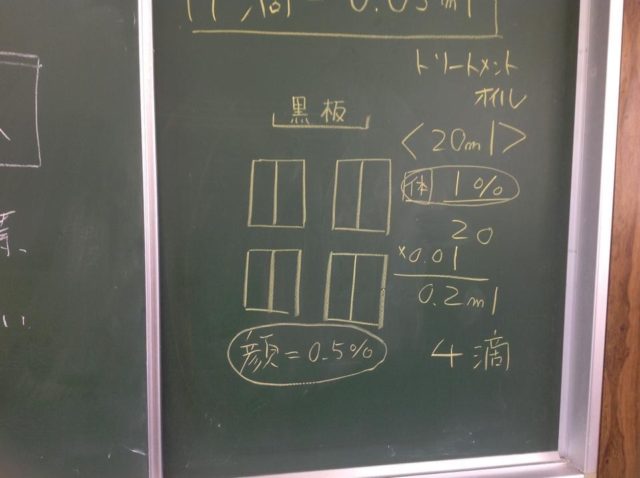 1滴=0.05ml
トリートメント
オイル
黒板
<20ml>
体 1%
20
×0.01
0.2ml
顔=0.5%
4滴
い.